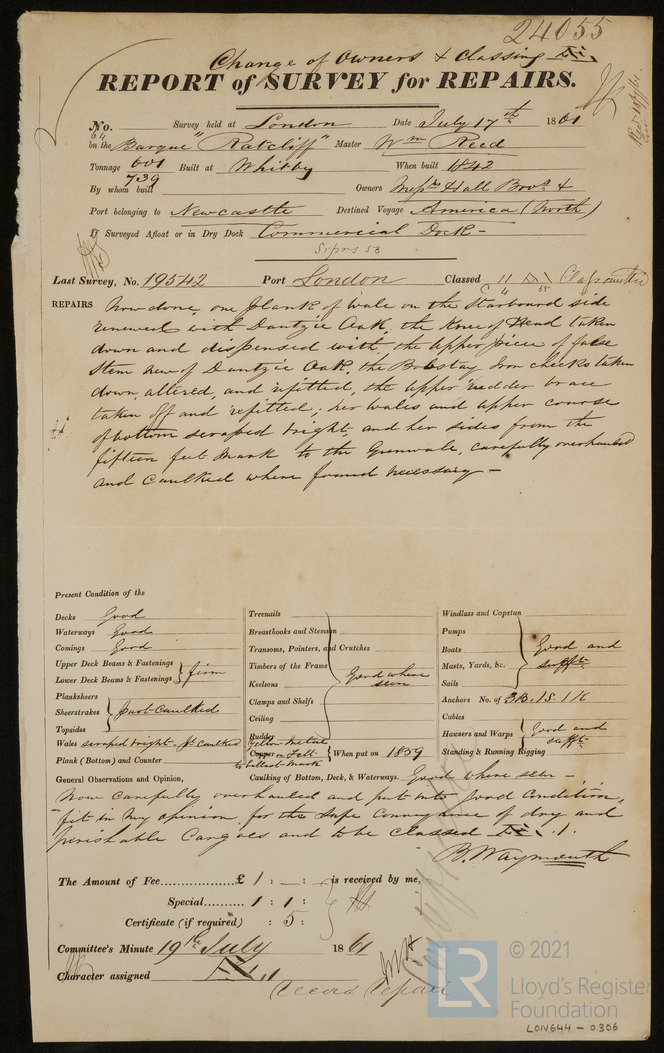 24055
Change of Owners & Classing
REPORT of SURVEY for REPAIRS.
No. 64 Survey held at London Date July 17th 1861
on the Barque "Ratcliff" Master Wm Reed
Tonnage 601 739 Built at Whitby When built 1842
By whom built Owners Messrs Hall Bros &
Port belonging to Newcastle Destined Voyage America (North)
If Surveyed Afloat or in Dry Dock Commercial Dock -
Last Survey, No. 19542 Port London Classed
REPAIRS Now done, one plank of wale on the Starboard side
renewed with Dantzic Oak, the Knee of Head taken
down and dispensed with, the upper piece of false
Stem new of Dantzic Oak, the Bobstay Iron cheeks taken
down, altered, and refitted, the upper rudder brace
taken off and refitted; her wales and upper course
of bottom scraped bright, and her sides from the
fifteen feet mark to the Gunwale, carefully overhauled
and Caulked where found necessary -
Present Condition of the
Decks Good
Waterways Good
Comings Good
Upper Deck Beams & Fastenings
Lower Deck Beams & Fastenings
firm
Planksheers
Sheerstrakes
Topsides
part Caulked
Wales scraped bright & Caulked
Plank (Bottom) and Counter
Treenails
Breasthooks and Stemson
Transoms, Pointers, and Crutches
Timbers of the Frame
Keelsons
Clamps and Shelfs
Ceiling
Good where seen
Rudder
Copper
Yellow Metal on Felt to ballast mark
When put on 1859
Windlass and Capstan
Pumps
Boats
Masts, Yards, &c.
Sails
Good and sufft
Anchors No. of 3B. 1S. 1K
Cables
Hawsers and Warps
Standing & Running Rigging
Good and sufft
General Observations and Opinion, Caulking of Bottom, Deck, & Waterways. Good where seen -
Now carefully overhauled and put into good Condition,
fit in my opinion for the safe Conveyance of dry and
perishable Cargoes and to be Classed
B. Waymouth
The Amount of Fee.................£ 1 : — : is received by me,
Special.......... 1 : 1 :
Certificate (if required) : 5 :
Committee's Minute 19th July 1861
Character assigned
© 2021
LR
Lloyd's Register
Foundation
LON644 - 0306